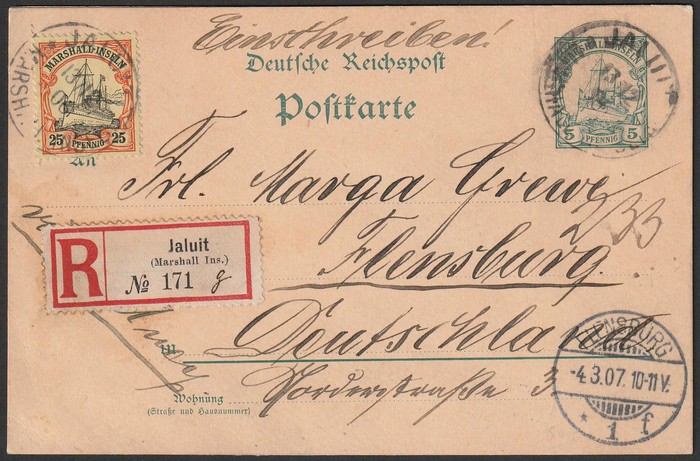 Einschreiben!
Deutsche Reichspost
Postkarte
MARSHALL-INSELN
25 PFENNIG 25
MARSHALL-INSELN
5 PFENNIG 5
JALUIT
An
Frl. Marga Grewe
233
Flensburg.
R
Jaluit
(Marshall Ins.)
No 171 g
in Deutschland
Norderstraße 3
Wohnung
(Straße und Hausnummer)
FLENSBURG
-4.3.07. 10-11V.
* 1 f